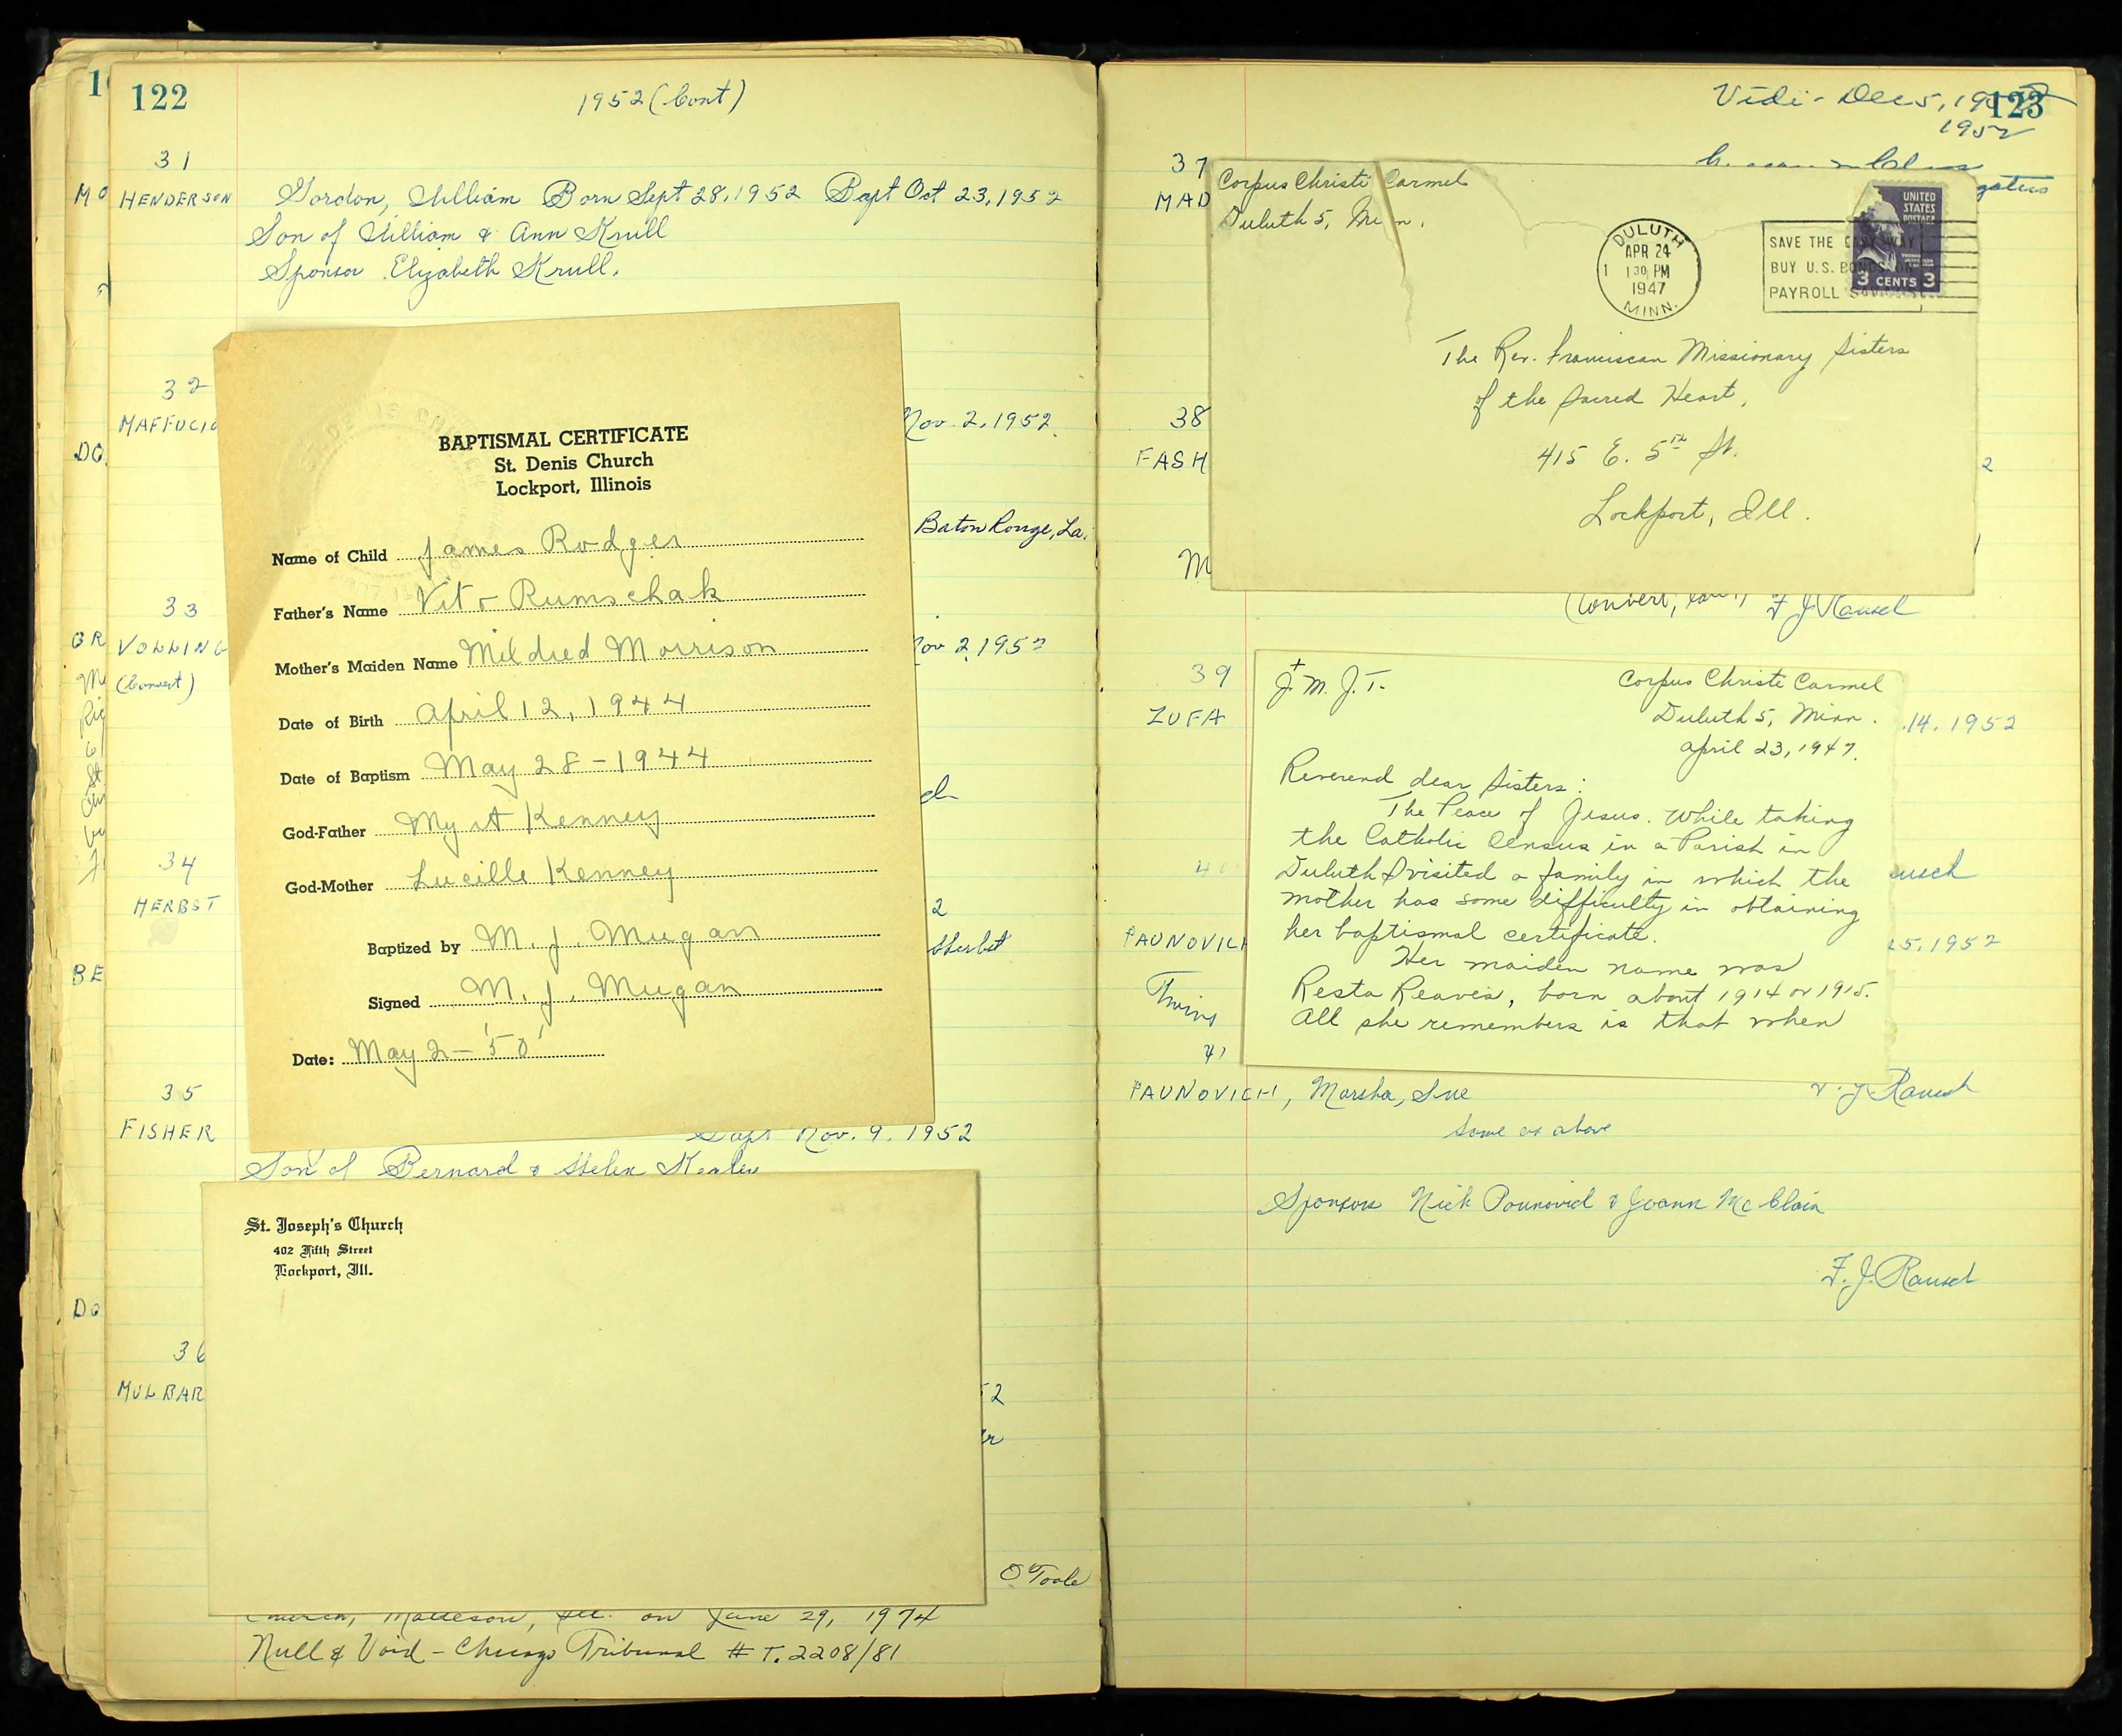 122
1952 (Cont)
31
HENDERSON Gordon, William Born Sept 28, 1952 Bapt Oct 23, 1952
Son of William & Ann Krull
Sponsor Elizabeth Krull.
32
MAFFUCI
Nov. 2, 1952
Baton Rouge, La.
33
VOLLING
Nov 2, 1952
(Convert)
34
HERBST
2
35
FISHER
Bapt Nov. 9, 1952
Son of Bernard & Helen
36
MULBAR
52
O'Toole
Church, Matteson, Ill. on June 29, 1974
Null & Void - Chicago Tribunal # T. 2208/81
MO
DO
GR
BE
DO
BAPTISMAL CERTIFICATE
St. Denis Church
Lockport, Illinois
Name of Child James Rodger
Father's Name Vito Rumschak
Mother's Maiden Name Mildred Morrison
Date of Birth April 12, 1944
Date of Baptism May 28-1944
God-Father Myrt Kenney
God-Mother Lucille Kenney
Baptized by M. J. Mugan
Signed M. J. Mugan
Date: May 2-'50'
St. Joseph's Church
402 Fifth Street
Lockport, Ill.
Vidi - Dec 5,
123
1952
37
MAD
Corpus Christi Carmel
Duluth 5, Minn.
DULUTH
APR 24
1 1 30 PM
1947
MINN.
SAVE THE EASY WAY
BUY U.S. BONDS ON
PAYROLL SAVINGS
UNITED
STATES
POSTAGE
3 CENTS 3
The Rev. Franciscan Missionary Sisters
of the Sacred Heart,
415 E. 5th St.
Lockport, Ill.
38
FASH
2
M
(Convert,
F J Rausch
39
ZUFA
14, 1952
J. M. J. T.
Corpus Christi Carmel
Duluth 5, Minn.
April 23, 1947.
Reverend dear Sisters:
The Peace of Jesus. While taking
the Catholic Census in a Parish in
Duluth I visited a family in which the
mother has some difficulty in obtaining
her baptismal certificate.
Her maiden name was
Resta Reaves, born about 1914 or 1915.
All she remembers is that when
40
PAUNOVICH
25, 1952
Twins
41
PAUNOVICH, Marsha, Sue
F. J Rausch
Same as above
Sponsors Nick Paunovich & Joann McClain
F. J. Rausch